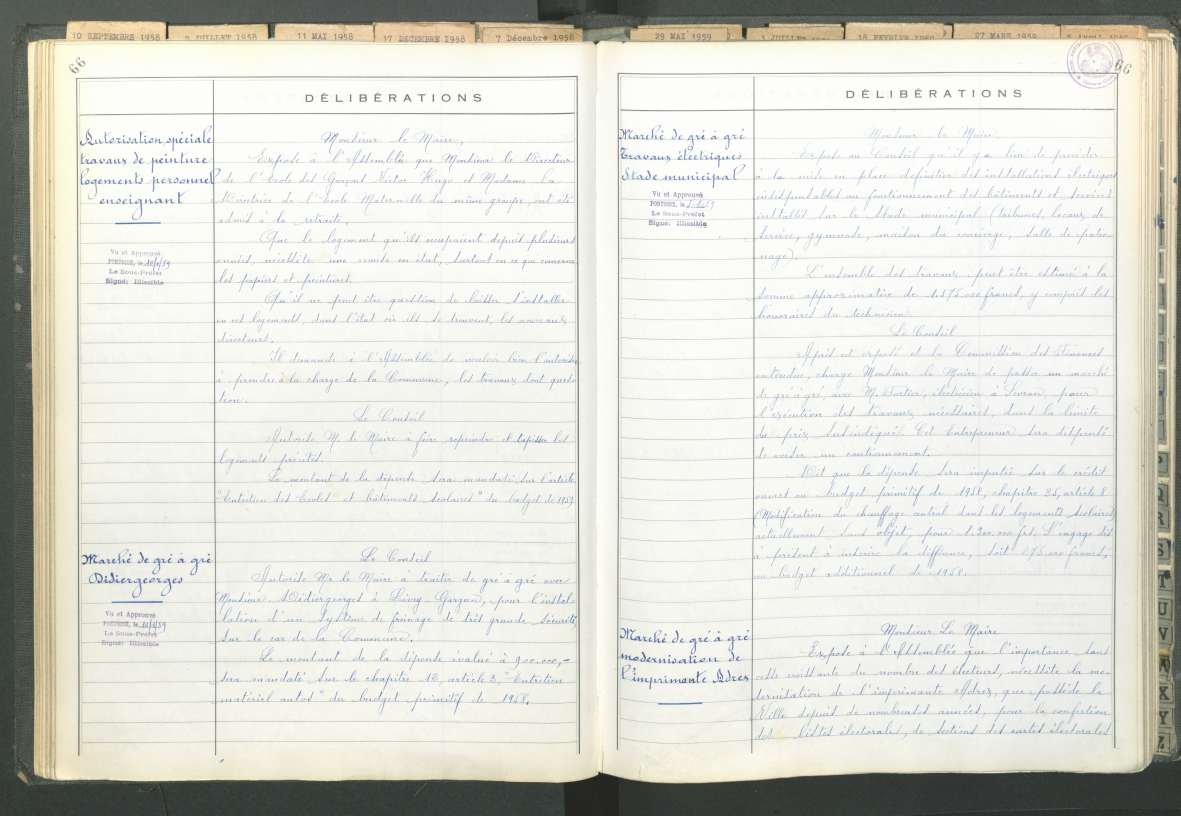 10 SEPTEMBRE 1958
9 JUILLET 1958
11 MAI 1958
17 DECEMBRE 1958
7 Décembre 1958
66
DÉLIBÉRATIONS
Autorisation spéciale
travaux de peinture
logements personnel
enseignant
Vu et Approuvé
PONTOISE, le
Le Sous-Préfet
Signé: Illisible
Monsieur le Maire,
Expose à l'Assemblée que Monsieur le Directeur
de l'Ecole des Garçons Victor Hugo et Madame la
Directrice de l'Ecole Maternelle du même groupe, ont été
admis à la retraite.
Que le logement qu'ils occupaient depuis plusieurs
années, nécessite une remise en état, surtout en ce qui concerne
les papiers et peintures.
Qu'il ne peut être question de laisser s'installer
en ces logements, dans l'état où ils se trouvent, les nouveaux
directeurs.
Il demande à l'Assemblée de vouloir bien l'autoriser
à prendre à la charge de la Commune, les travaux dont ques-
tion.
Le Conseil
Autorise M. le Maire à faire repeindre et tapisser les
logements précités.
Le montant de la dépense sera mandaté sur l'article
"Entretien des Ecoles et bâtiments scolaires" du budget de 1959
Marché de gré à gré
Didiergeorges
Vu et Approuvé
PONTOISE, le
Le Sous-Préfet
Signé: Illisible
Le Conseil
Autorise Mr le Maire à traiter de gré à gré avec
Monsieur Didiergeorges à Livry-Gargan, pour l'instal-
lation d'un système de freinage de très grande sécurité
sur le car de la Commune.
Le montant de la dépense évalué à 900.000,-
sera mandaté sur le chapitre 10, article 3, "Entretien
matériel autos" du budget primitif de 1958.
29 MAI 1959
18 FEVRIER 1960
27 MARS 1959
66
DÉLIBÉRATIONS
Marché de gré à gré
Travaux électriques
Stade municipal
Vu et Approuvé
PONTOISE, le
Le Sous-Préfet
Signé: Illisible
Monsieur le Maire
Expose au Conseil qu'il y a lieu de procéder
à la mise en place définitive des installations électriques
indispensables au fonctionnement des bâtiments et services
installés sur le Stade municipal (tribunes, locaux de
service, gymnase, maison du concierge, salle de patro-
nage).
L'ensemble des travaux peut être estimé à la
somme approximative de 1.575.000 francs, y compris les
honoraires du technicien.
Le Conseil
Après cet exposé et la Commission des Finances
entendue, charge Monsieur le Maire de passer un marché
de gré à gré, avec M. électricien à Sevran, pour
l'exécution des travaux nécessaires, dans la limite
du prix susindiqué. Cet Entrepreneur sera dispensé
de verser un cautionnement.
Dit que la dépense sera imputée sur le crédit
ouvert au budget primitif de 1958, chapitre 35, article 8
(Modification du chauffage central dans les logements scolaires)
actuellement sans objet, pour 1.300.000 frs. S'engage dès
à présent à inscrire la différence, soit 275.000 francs,
au budget additionnel de 1958.
Marché de gré à gré
modernisation de
l'imprimante Adrex
Monsieur Le Maire
Expose à l'Assemblée que l'importance sans
cesse croissante du nombre des électeurs, nécessite la mo-
dernisation de l'imprimante Adrex, que possède la
Ville depuis de nombreuses années, pour la confection
des listes électorales, de sections des cartes électorales
P
Q
R
S
T
U
V
X
Y
Z